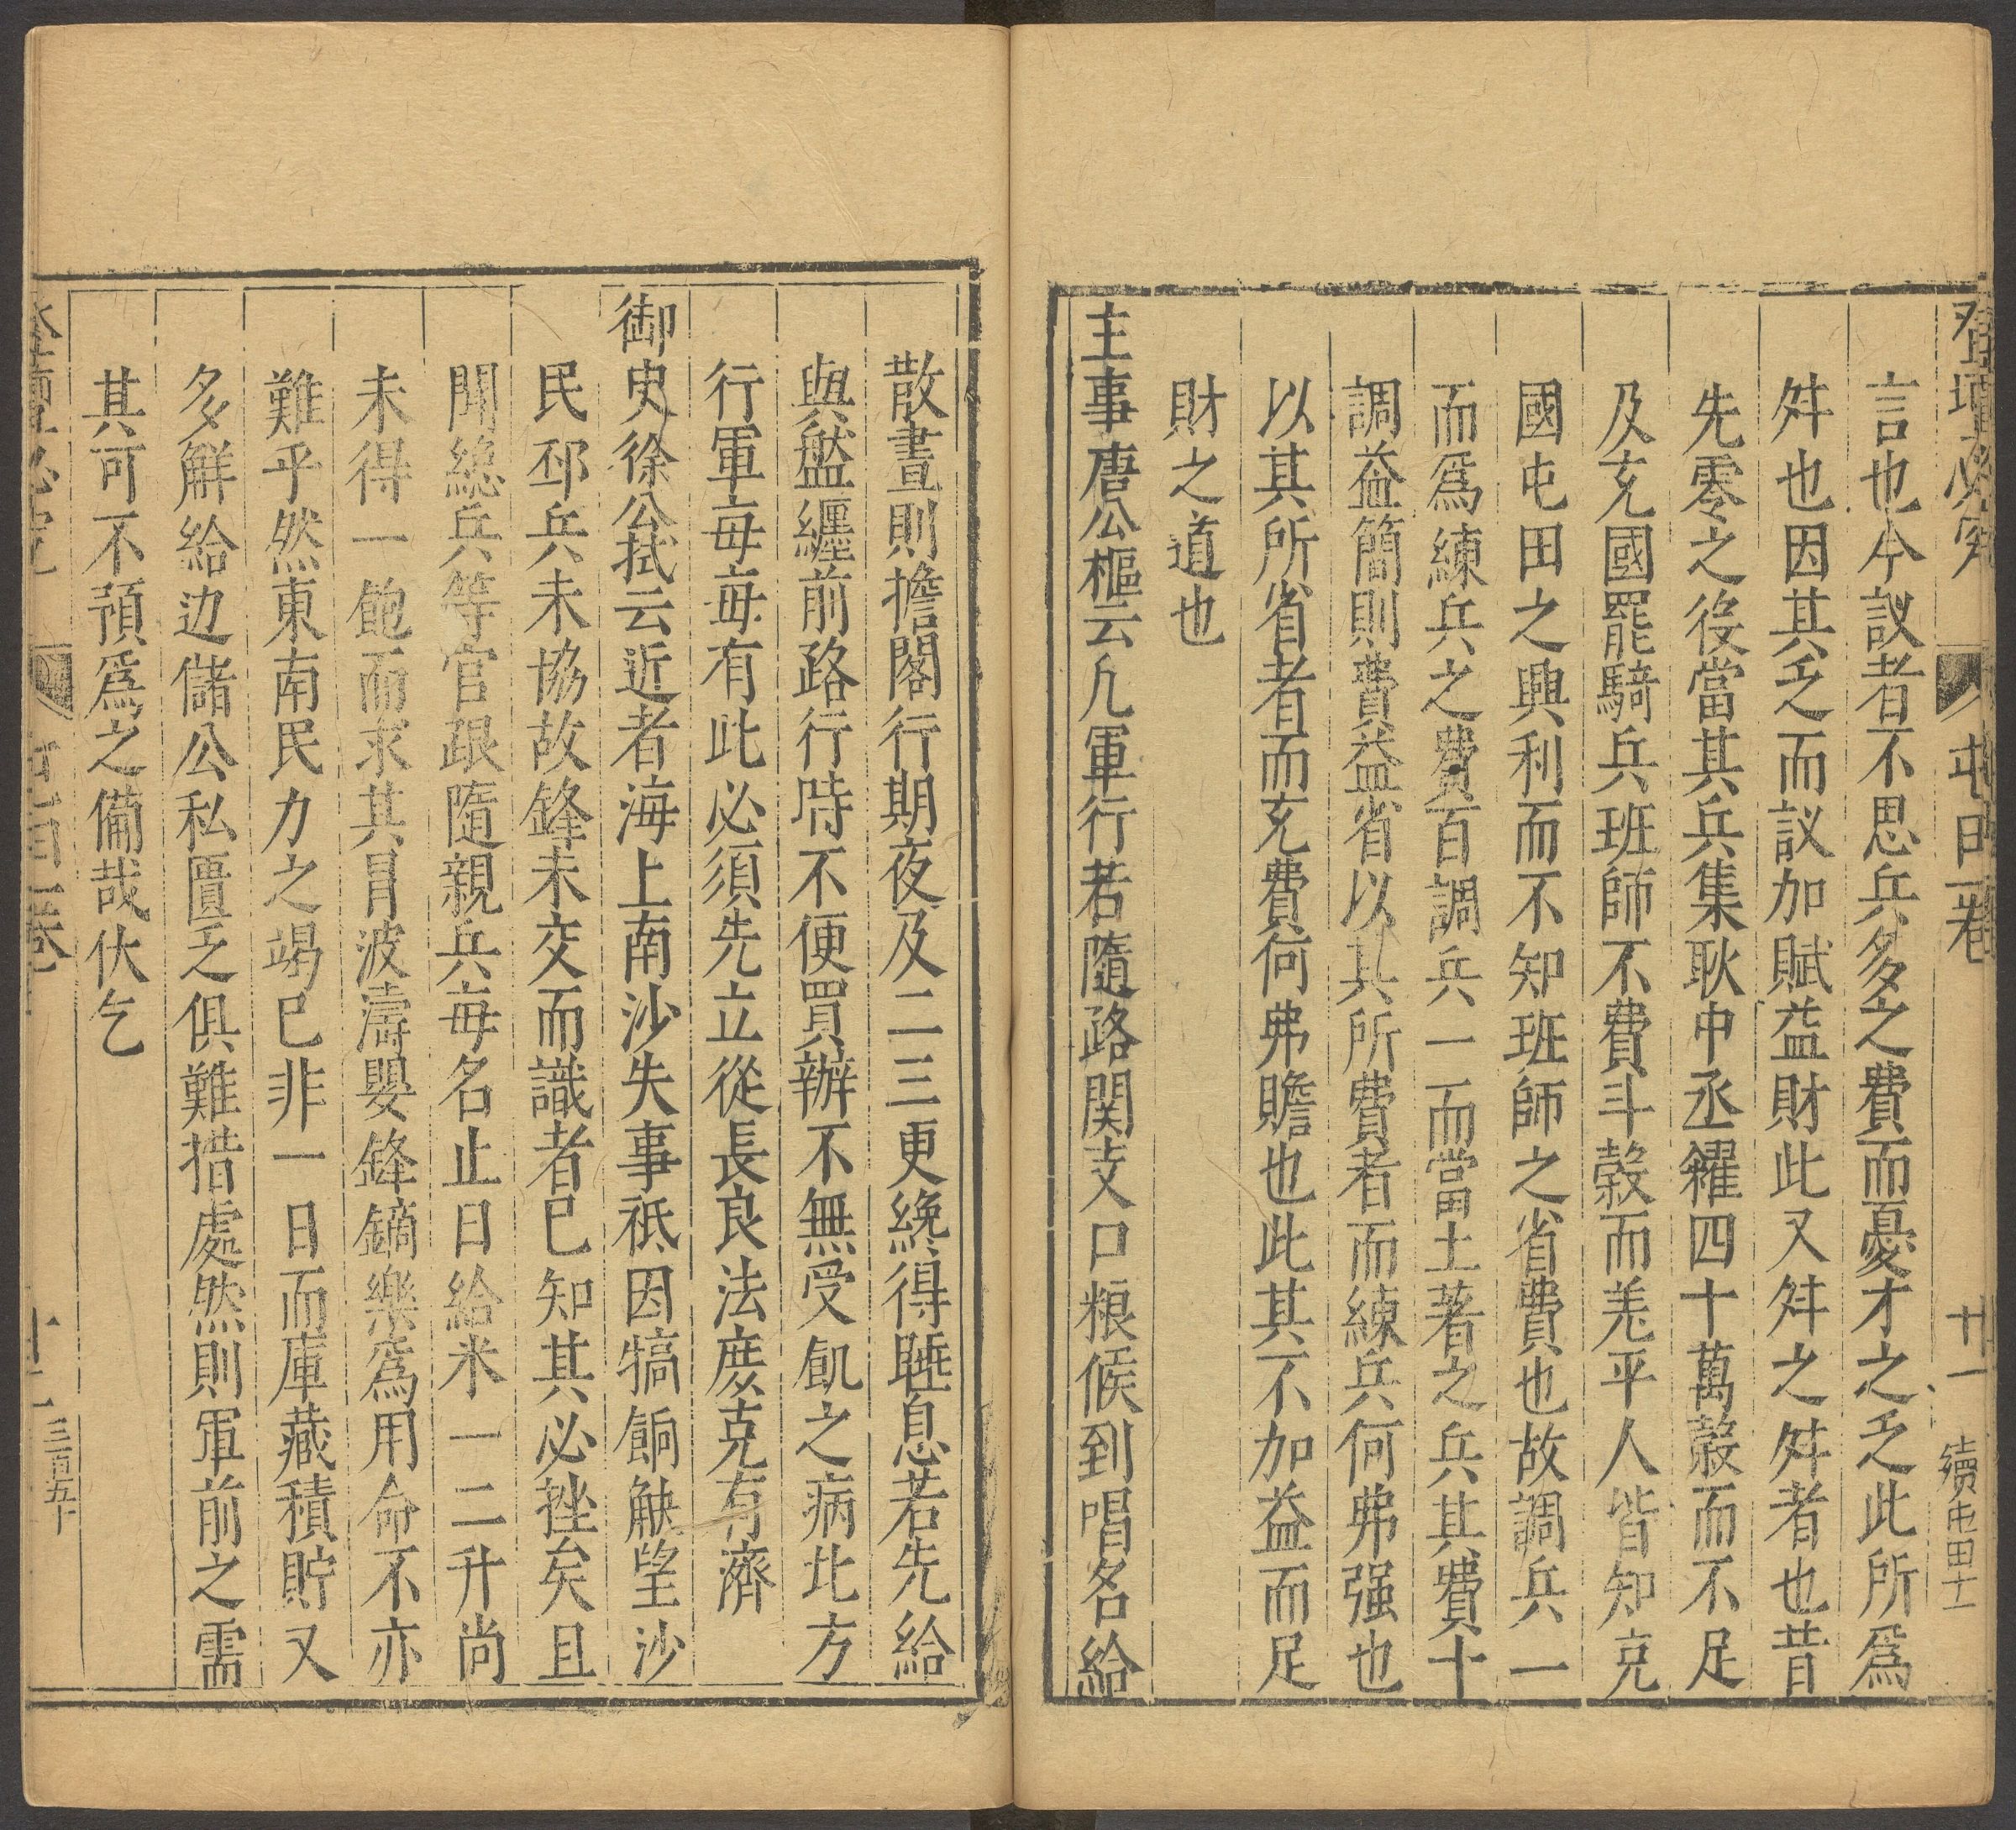 登壇必究
屯田一卷
十一
續屯田十一
言也今議者不思兵多之費而憂才之乏此所爲
舛也因其乏而議加賦益財此又舛之舛者也昔
先零之役當其兵集耿中丞糴四十萬榖而不足
及充國罷騎兵班師不費斗榖而羌平人皆知充
國屯田之興利而不知班師之省費也故調兵一
而爲練兵之費百調兵一而當土著之兵其費十
調益簡則費益省以其所費者而練兵何弗强也
以其所省者而充費何弗贍也此其不加益而足
財之道也
主事唐公樞云凡軍行若隨路関支口粮候到唱名給
散晝則擔閣行期夜及二三更纔得睡息若先給
與盤纏前路行時不便買辦不無受飢之病北方
行軍每每有此必須先立從長良法庶克有濟
御史徐公栻云近者海上南沙失事祇因犒餉觖望沙
民邳兵未協故鋒未交而識者已知其必挫矣且
聞總兵等官跟隨親兵每名止日給米一二升尚
未得一飽而求其冒波濤嬰鋒鏑樂爲用命不亦
難乎然東南民力之竭已非一日而庫藏積貯又
多解給边儲公私匱乏俱難措處然則軍前之需
其可不預爲之備哉伏乞
十二
三百五十